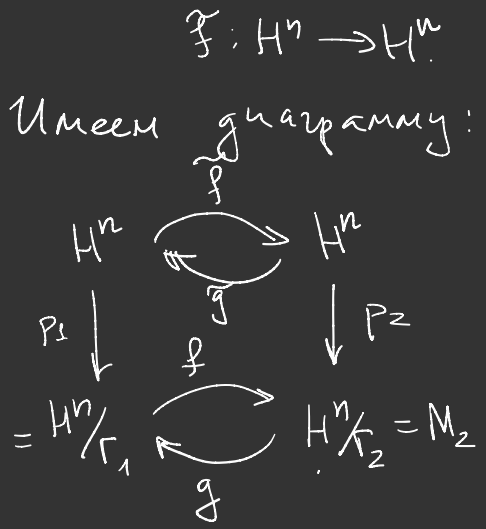 f̃ : Hⁿ → Hⁿ.
Имеем диаграмму:
f̃
Hⁿ Hⁿ
g̃
p₁ p₂
f
= Hⁿ/Γ₁ Hⁿ/Γ₂ = M₂
g